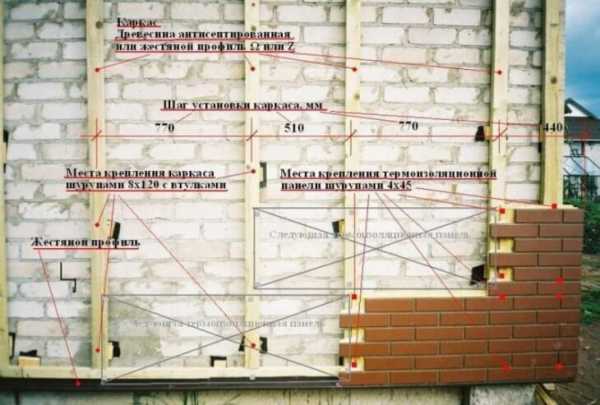 Каркас
Древесина антисептированная
или жестяной профиль Ω или Z
Шаг установки каркаса, мм
770
510
770
440
Места крепления каркаса
шурупами 8х120 с втулками
Места крепления термоизоляционной
панели шурупами 4х45
Следующая термоизоляционная панель
Жестяной профиль
термоизоляционная панель